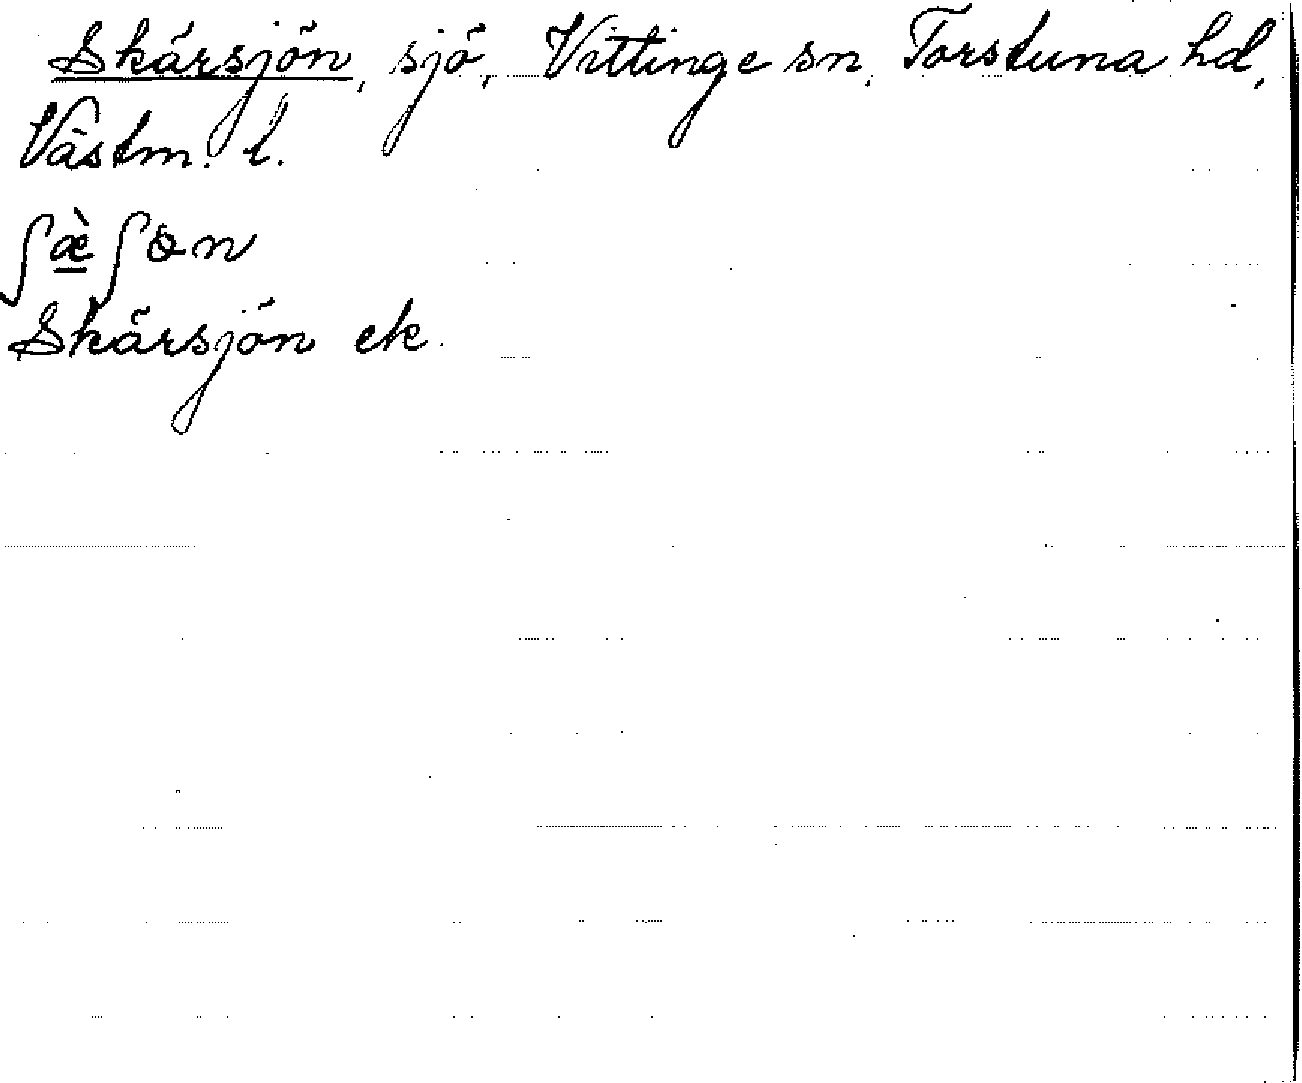 Skärsjön, sjö, Vittinge sn, Torstuna hd,
Västm. l.
ʃæ̠̀ʃɵn
Skärsjön ek.